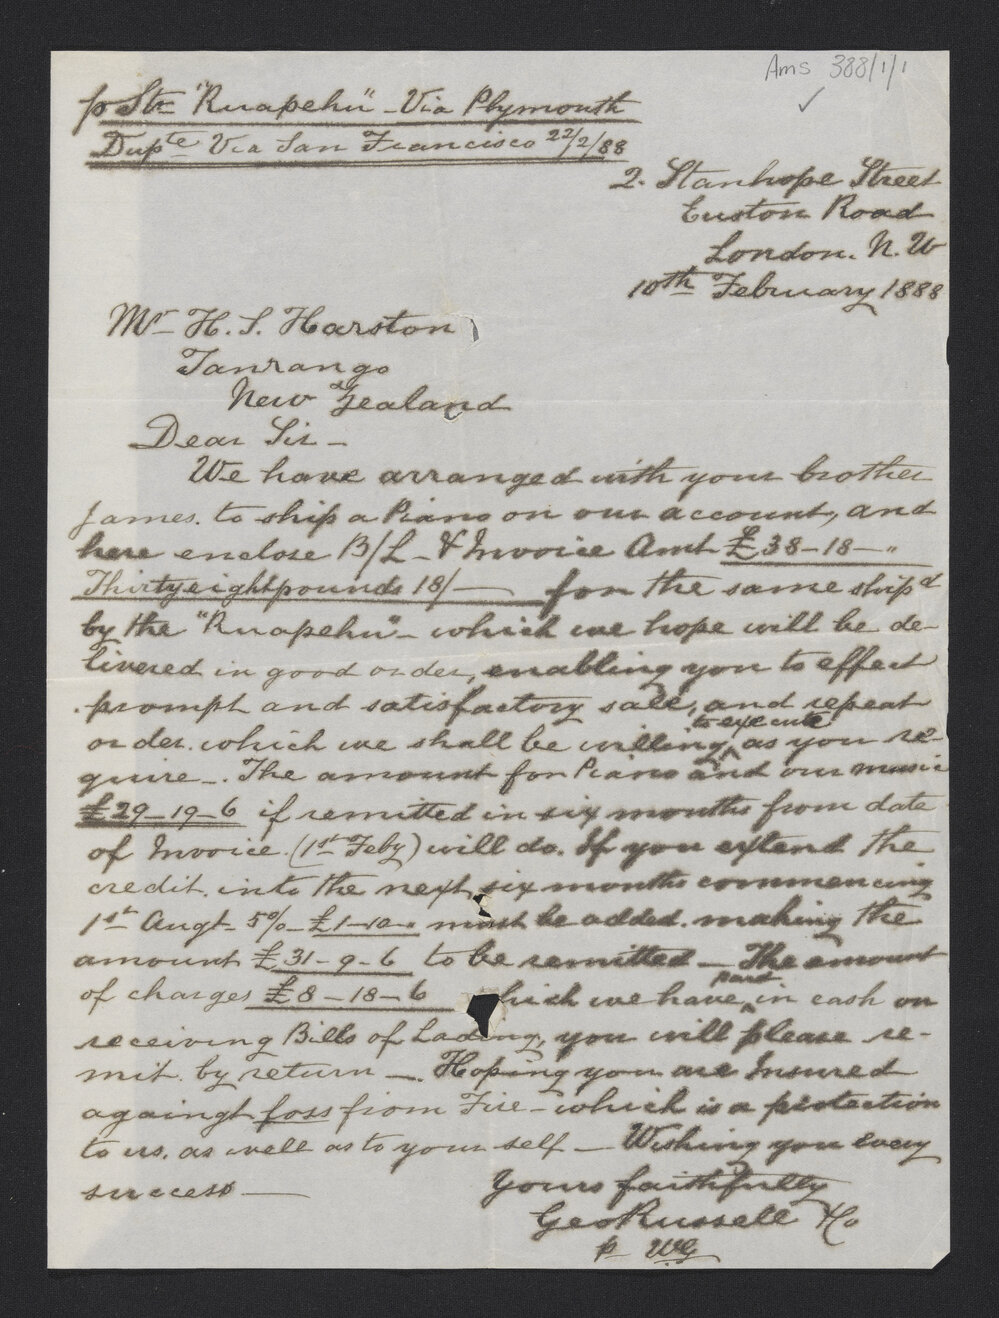 Ams 388/1/1
p Str "Ruapehu" - Via Plymouth
Dupte Via San Francisco 22/2/88
2. Stanhope Street
Euston Road
London. N. W
10th February 1888
Mr H. S. Harston
Tauranga
New Zealand
Dear Sir -
We have arranged with your brother
James. to ship a Piano on our account, and
here enclose B/L - & Invoice Amt £38-18-"
Thirtyeightpounds 18/- for the same ship'd
by the "Ruapehu" - which we hope will be de-
livered in good order, enabling you to effect
prompt and satisfactory sale, and repeat
order. which we shall be willing to execute as you re-
quire -. The amount for Piano and our music
£29-19-6 if remitted in six months from date
of Invoice. (1st Feby) will do. If you extend the
credit. into the next six months commencing
1st Augt - 5% - £1-10-" must be added. making the
amount £31-9-6 to be remitted - The amount
of charges £8-18-6 which we have paid in cash on
receiving Bills of Lading, you will please re-
mit. by return - Hoping you are Insured
against loss from Fire - which is a protection
to us. as well as to your self - Wishing you every
success -
Yours faithfully
Geo Russell & Co
p WG